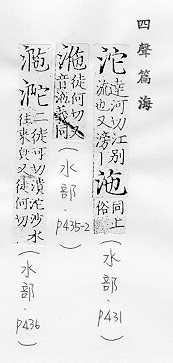 四聲篇海
沱 達河切江別
流也又滂丨沲 同上
俗(水部.P431)
沲 徒何切又
音池義同(水部.P435-2)
沱 二徒可切瀢沱沙水
往來皃又徒何切.(水部.P436)